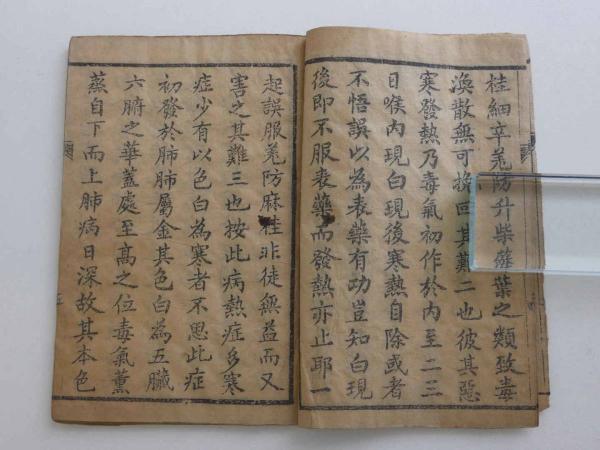 桂細辛羌防升柴蘇葉之類致毒
渙散無可挽回其難二也彼其惡
寒發熱乃毒氣初作於內至二三
日喉內現白現後寒熱自除或者
不悟誤以為表藥有功豈知白現
後即不服表藥而發熱亦止耶一
起誤服羌防麻桂非徒無益而又
害之其難三也按此病熱症多寒
症少有以色白為寒者不思此症
初發於肺肺屬金其色白為五臟
六腑之華蓋處至高之位毒氣薰
蒸自下而上肺病日深故其本色